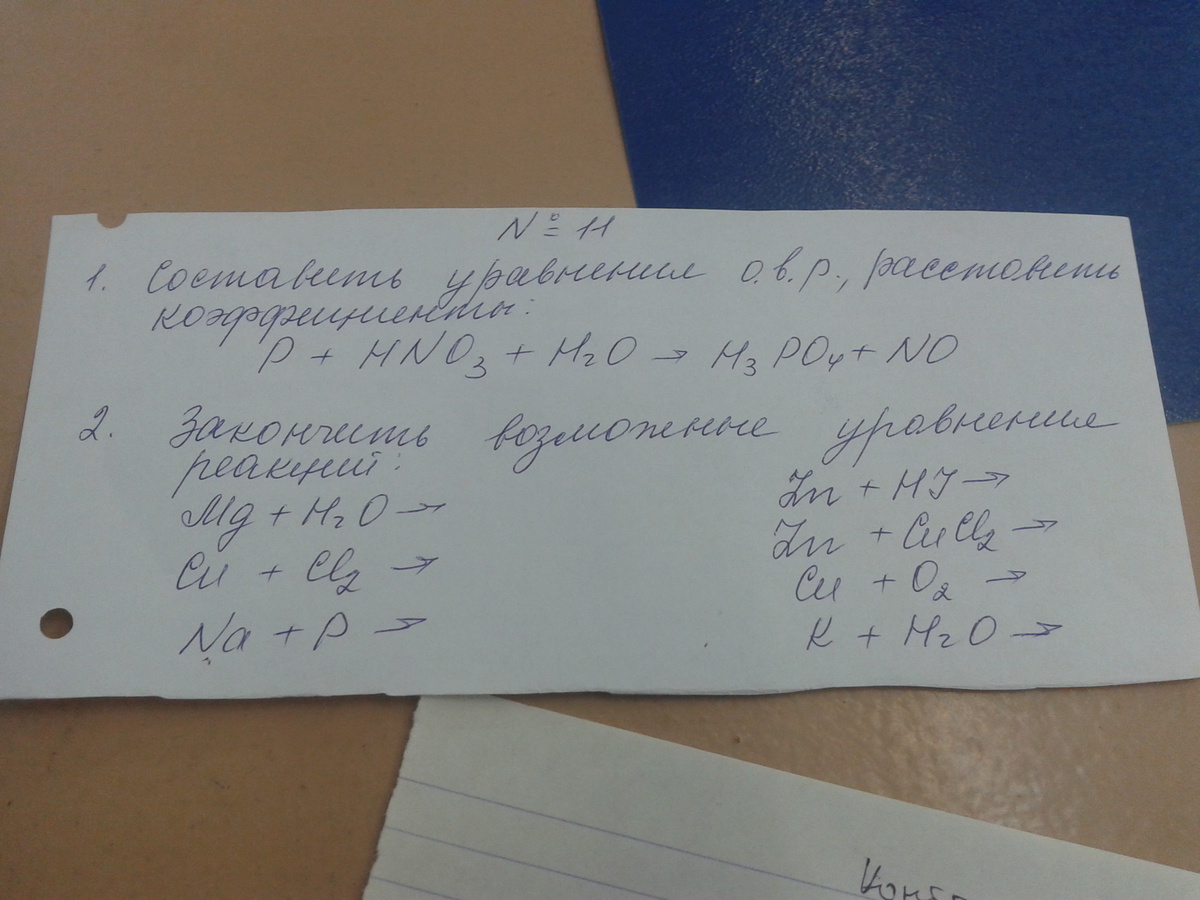 № 11
1. Составить уравнения о.в.р., расставить
коэффициенты:
P + HNO₃ + H₂O → H₃PO₄ + NO
2. Закончить возможные уравнения
реакций:
Mg + H₂O →
Cu + Cl₂ →
Na + P →
Zn + HJ →
Zn + CuCl₂ →
Cu + O₂ →
K + H₂O →